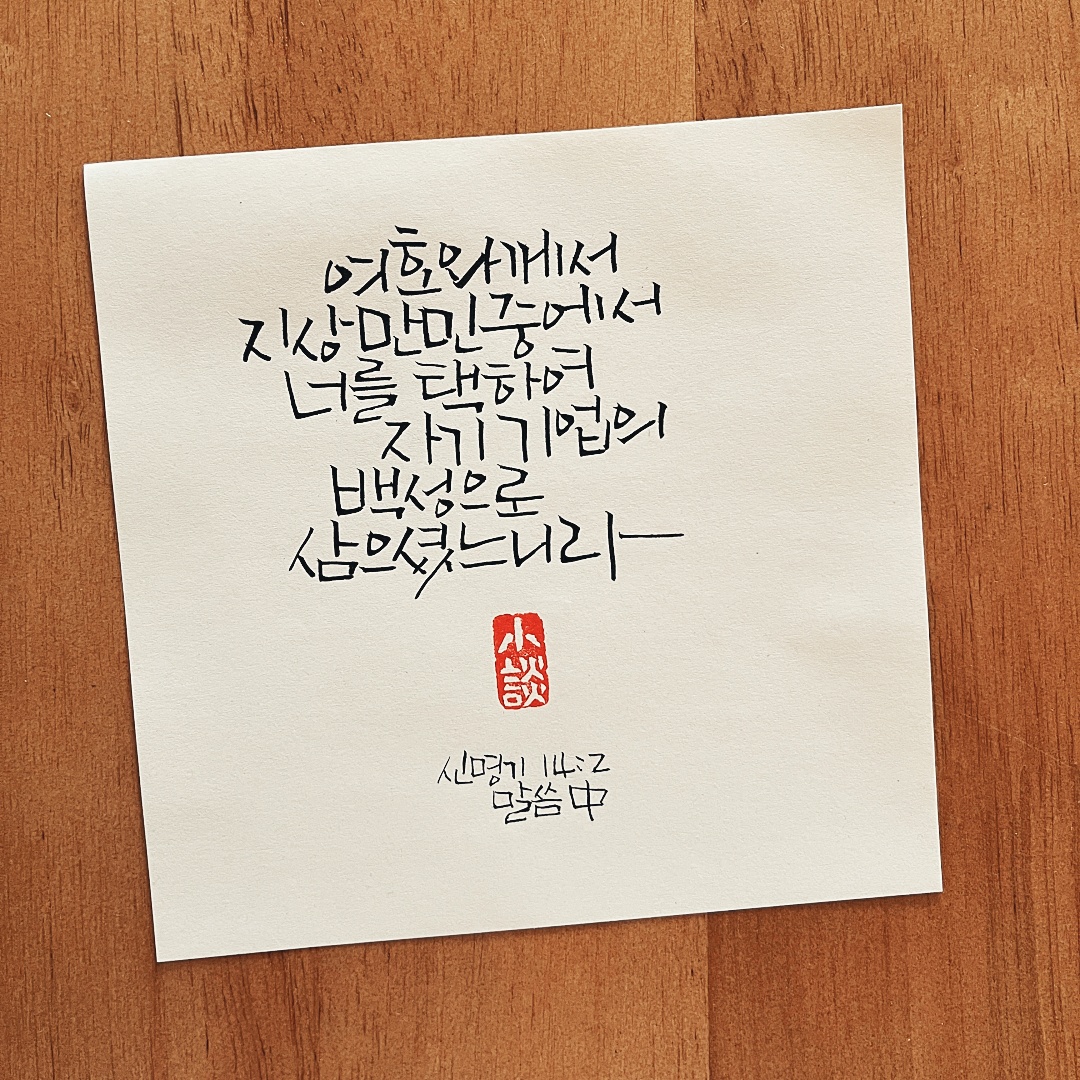 여호와께서
지상만민중에서
너를 택하여
자기 기업의
백성으로
삼으셨느니라-
小談
신명기 14:2
말씀 中